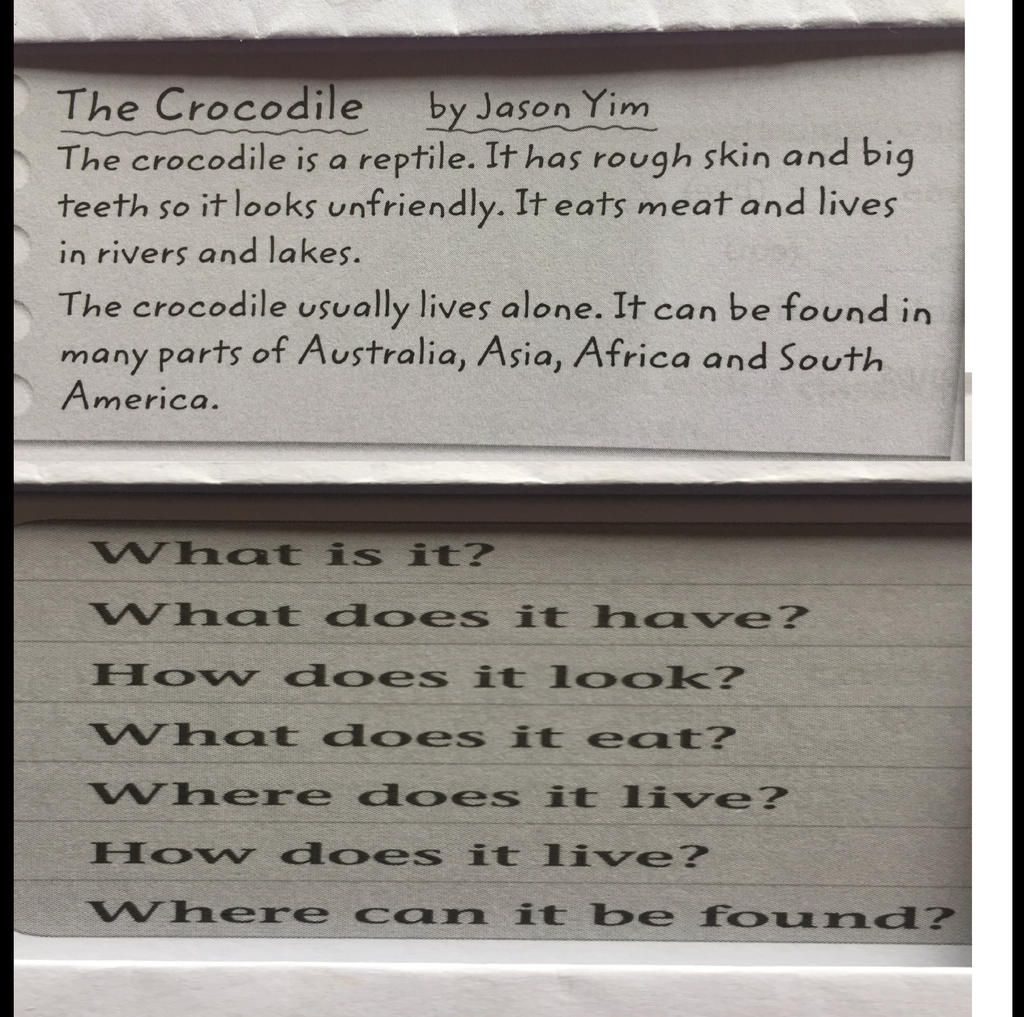 The Crocodile by Jason Yim
The crocodile is a reptile. It has rough skin and big
teeth so it looks unfriendly. It eats meat and lives
in rivers and lakes.
The crocodile usually lives alone. It can be found in
many parts of Australia, Asia, Africa and South
America.
What is it?
What does it have?
How does it look?
What does it eat?
Where does it live?
How does it live?
Where can it be found?